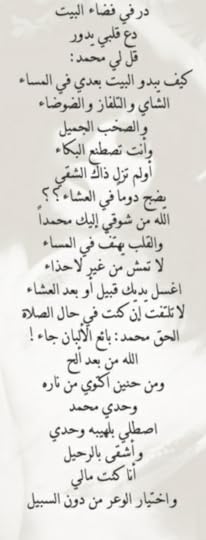 در في فضاء البيت
دع قلبي يدور
قل لي محمد:
كيف يبدو البيت بعدي في المساء
الشاي والتلفاز والضوضاء
والصخب الجميل
وأنت تصطنع البكاء
أولم تزل ذاك الشقي
يضج دوماً في العشاء؟؟
الله من شوقي إليك محمداً
والقلب يهتف في المساء
لا تمش من غير لاحذاء
اغسل يديك قبيل أو بعد العشاء
لا تلتفت إن كنت في حال الصلاة
الحق محمد: بائع الألبان جاء!
الله من بعد ألح
ومن حنين اكتوي من ناره
وحدي محمد
اصطلي بلهيبه وحدي
وأشقى بالرحيل
أنا كنت مالي
واختيار الوعر من دون السبيل